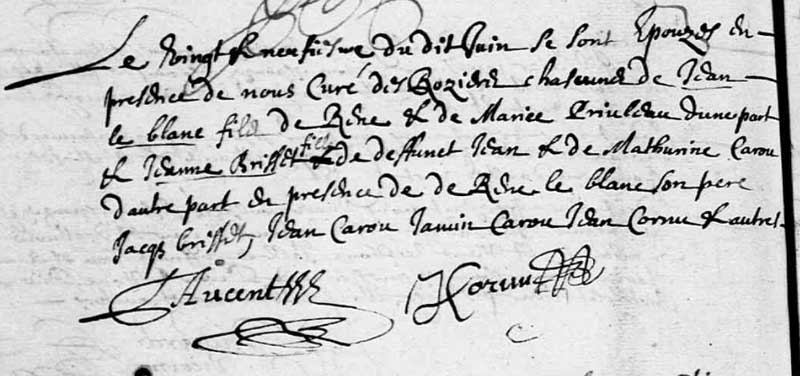 Le Vingt & neufiesme du dit Juin se sont Epouzes en
presence de nous Curé des Roziers chascunes de Jean
le blanc fils de Rene & de Mariee d'une part
& Jeanne Brisset fille de deffunct Jean & de Mathurine Carou
d'autre part en presence de de Rene le blanc son pere
Jacqs brisset, Jean Carou Jamin Carou Jean Cornu & autres
Aucent
J Cornu